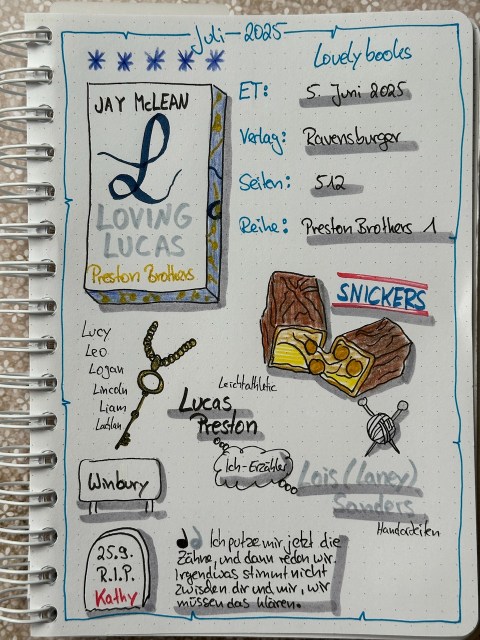 Juli-2025
Lovelybooks
JAY McLEAN
L
LOVING
LUCAS
Preston Brothers
ET: 5. Juni 2025
Verlag: Ravensburger
Seiten: 512
Reihe: Preston Brothers 1
SNICKERS
Lucy
Leo
Logan
Lincoln
Liam
Lachlan
Leichtathletic
Lucas
Preston
Ich-Erzähler
Lois (Laney)
Sanders
Handarbeiten
Winbury
25.9.
R.I.P.
Kathy
Ich putze mir jetzt die
Zähne, und dann reden wir.
Irgendwas stimmt nicht
zwischen dir und mir, wir
müssen das klären.